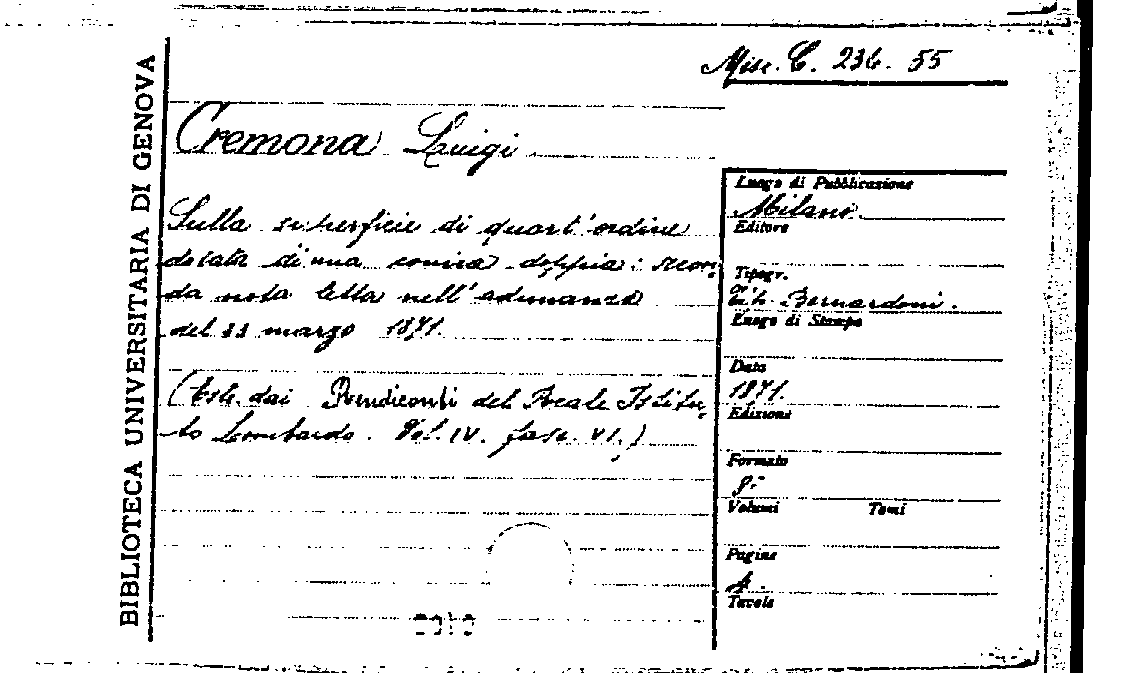 BIBLIOTECA UNIVERSITARIA DI GENOVA
Misc. C. 236. 55
Cremona Luigi
Sulla superficie di quart'ordine
dotata di una conica doppia: secon-
da nota letta nell'adunanza
del 23 marzo 1871.
(Estr. dai Rendiconti del Reale Istitu-
to Lombardo. Vol. IV. fasc. VI.)
Luogo di Pubblicazione
Milano.
Editore
Tipogr.
Bernardoni.
Luogo di Stampa
Data
1871.
Edizione
Formato
8°
Volumi Tomi
Pagine
4.
Tavole